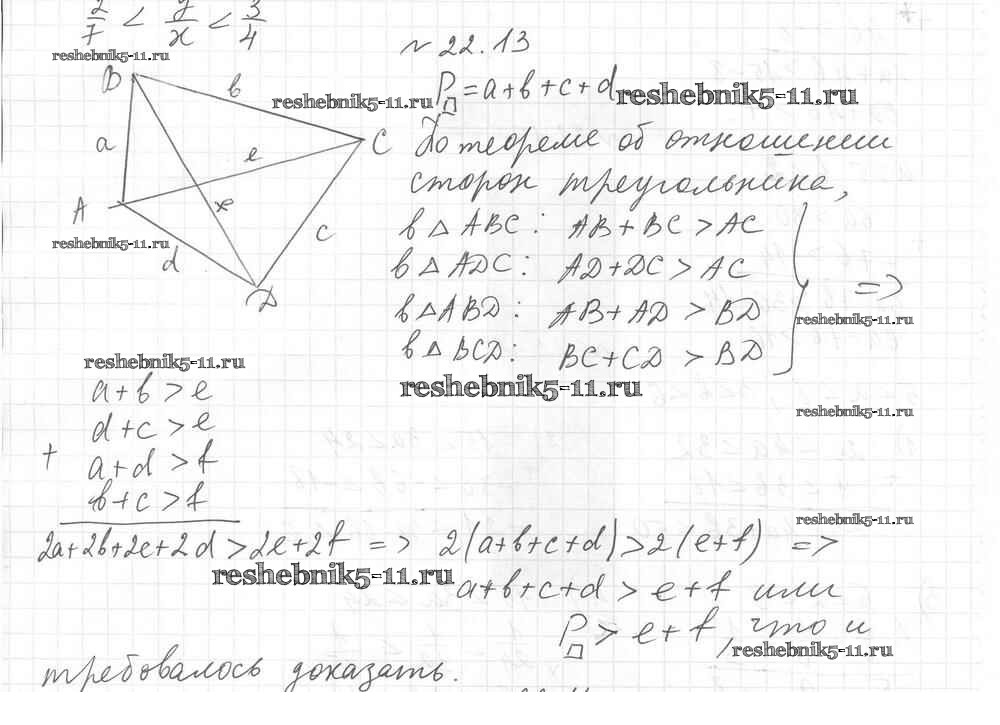 2/7 < y/x < 3/4
reshebnik5-11.ru
№ 22.13
B
b
reshebnik5-11.ru
P□ = a+b+c+d
reshebnik5-11.ru
a
e
C
По теореме об отношении
сторон треугольника,
A
f
c
d
D
reshebnik5-11.ru
в △ ABC: AB + BC > AC
в △ ADC: AD + DC > AC
в △ ABD: AB + AD > BD
в △ BCD: BC + CD > BD
=>
reshebnik5-11.ru
reshebnik5-11.ru
reshebnik5-11.ru
reshebnik5-11.ru
a+b > e
d+c > e
+
a+d > f
b+c > f
reshebnik5-11.ru
2a+2b+2c+2d > 2e+2f => 2(a+b+c+d) > 2(e+f) =>
reshebnik5-11.ru
a+b+c+d > e+f или
P□ > e+f, что и
reshebnik5-11.ru
требовалось доказать.